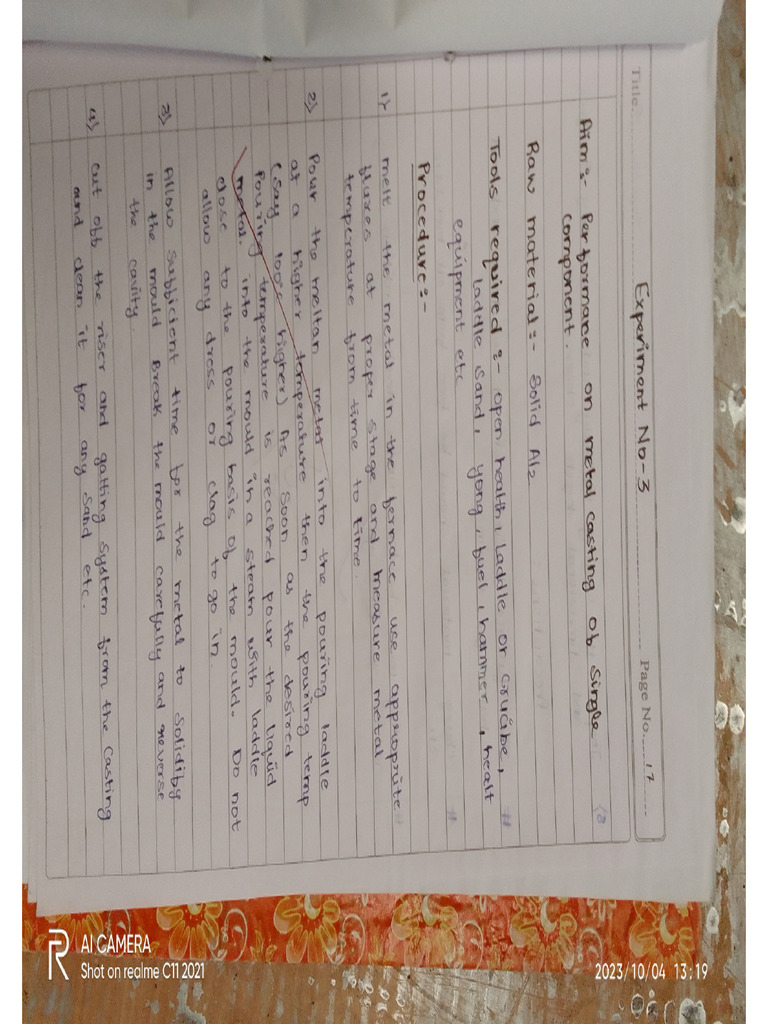 Title. Experiment No-3 Page No. 17
Aim:- Performane on metal casting of single
component.
Raw material:- Solid Al2
Tools required:- open health, laddle or crucibe,
laddle sand, yong, fuel, hammer, healt
equipment etc
Procedure:-
1) melt the metal in the fernace use approprite
fluxes at proper stage and measure metal
temperature from time to time.
2) Pour the meltan metal into the pouring laddle
at a higher temperature then the pouring temp
(say 100°c higher) As soon as the desired
Pouring temperature is reached pour the liquid
metal. into the mould in a steam with laddle
close to the pouring basis of the mould. Do not
allow any dress or clag to go in.
3) Allow subbicient time for the metal to Solidiby
in the mould Break the mould carefully and reverse
the cavity
4) Cut obb the riser and gatting System from the Casting
and clean it for any Sand etc.
AI CAMERA
Shot on realme C11 2021
2023/10/04 13:19